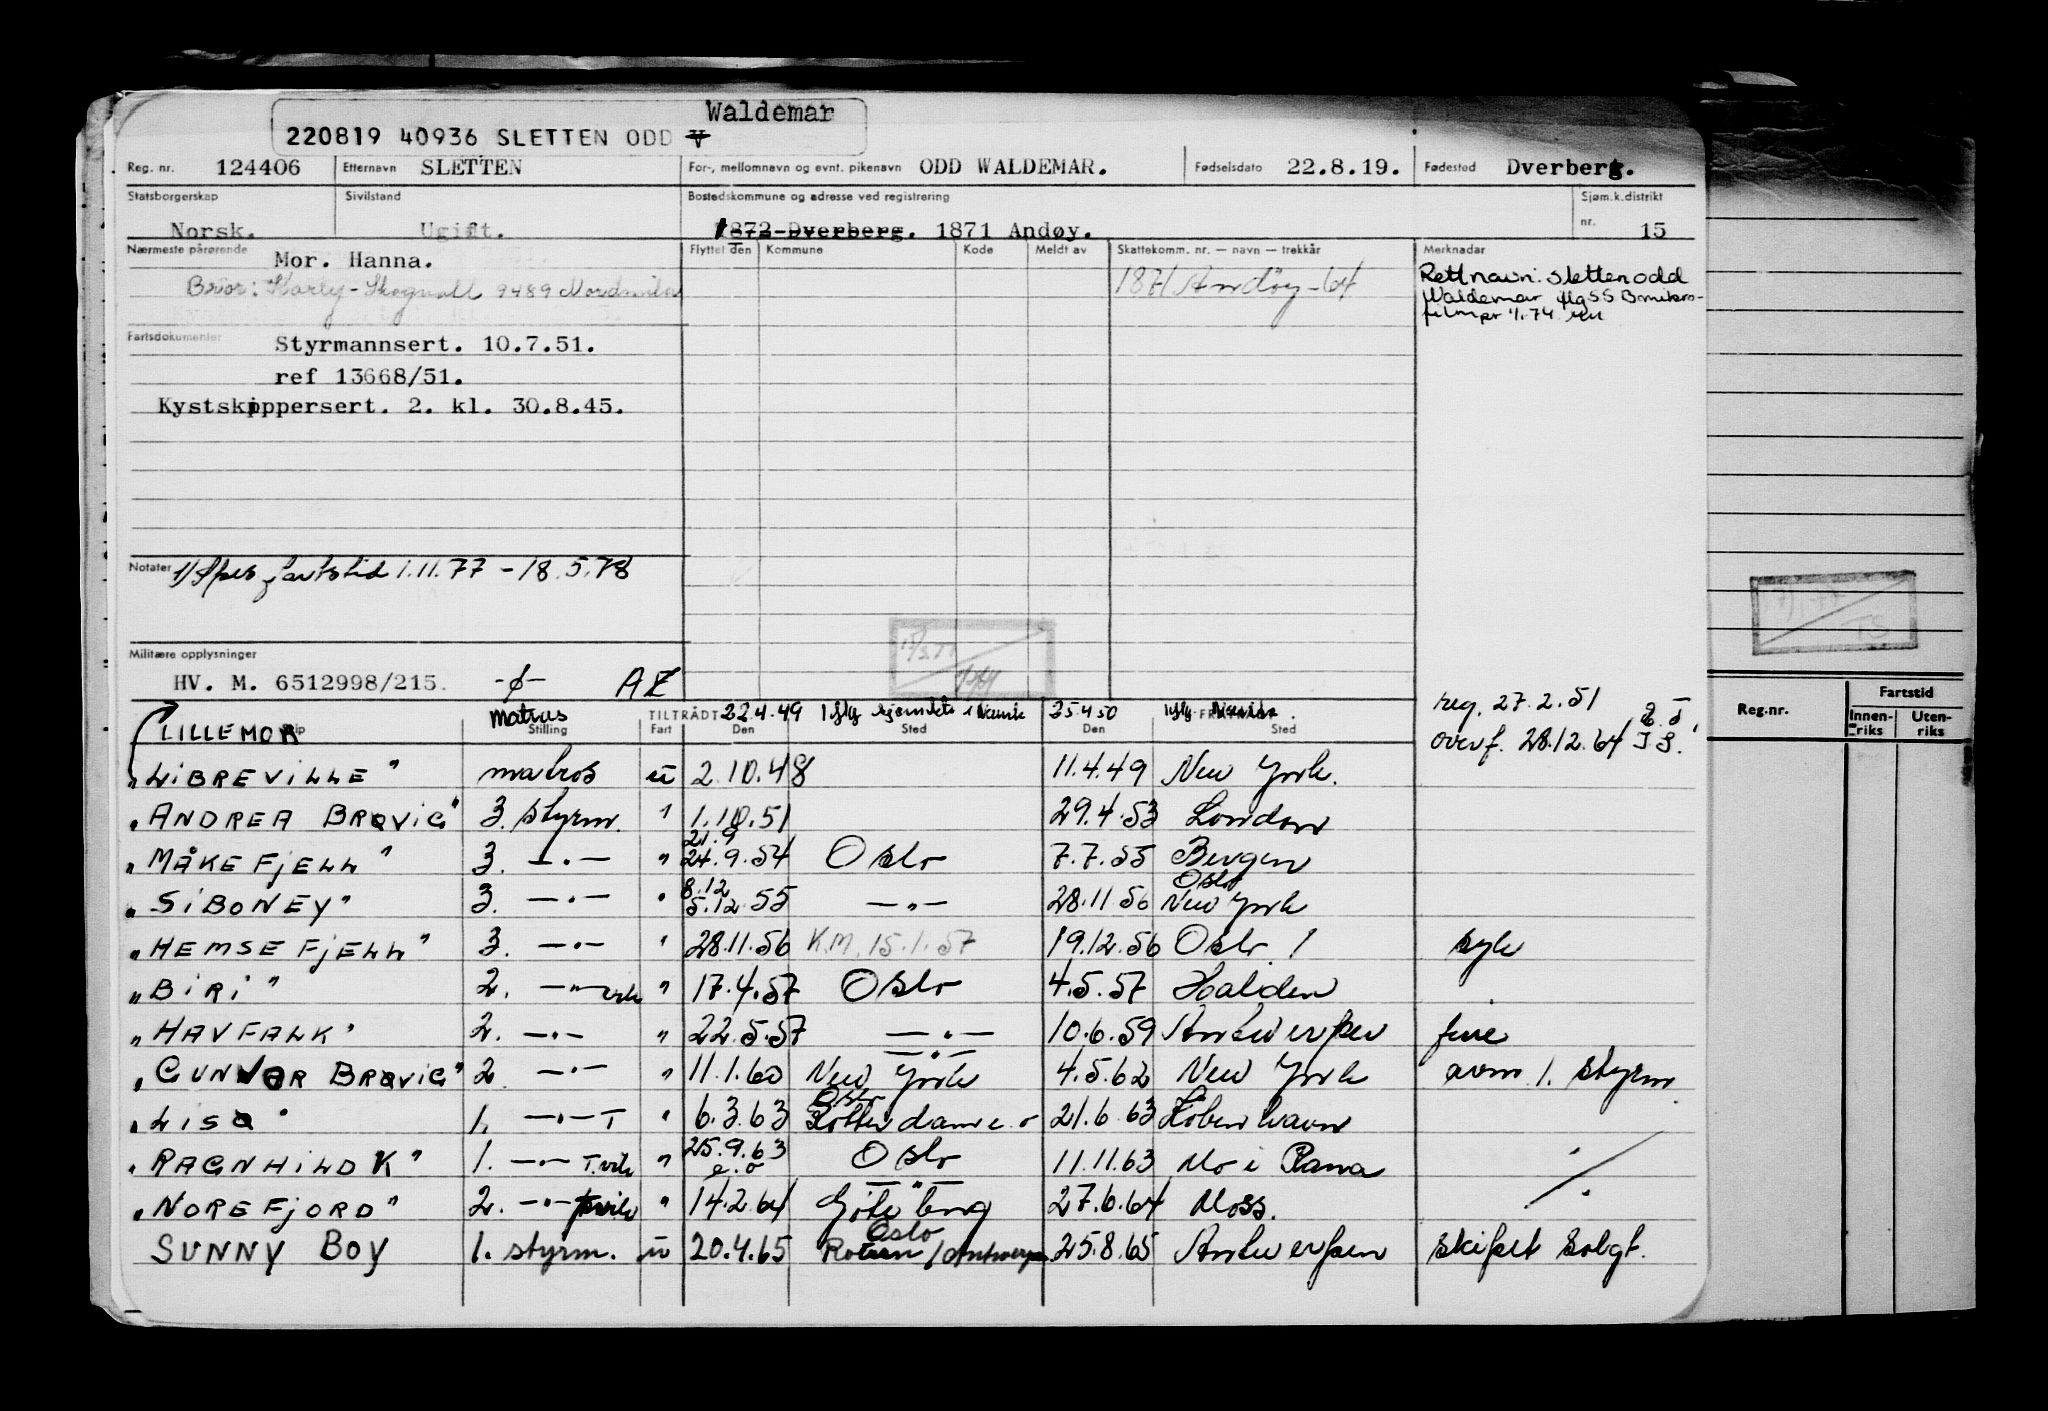 Waldemar
220819 40936 SLETTEN ODD V
Reg. nr. 124406 Etternavn SLETTEN For-, mellomnavn og evnt. pikenavn ODD WALDEMAR. Fødselsdato 22.8.19. Fødested Dverberg.
Statsborgerskap Sivilstand Bostedskommune og adresse ved registrering Sjøm.k.distrikt
Norsk. Ugift. 1872 Dverberg. 1871 Andøy. nr. 15
Nærmeste pårørende Flyttet den Kommune Kode Meldt av Skattekomm. nr. — navn — trekkår Merknader
Mor. Hanna.
1871 Andøy -64
Rett navn: Sletten odd
Bror: Karly - Skogvoll 9489 Nordmela
Waldemar iflg SS Bmikro-
film pr 1/1.74
Fartsdokumenter Styrmannsert. 10.7.51.
ref 13668/51.
Kystskippersert. 2. kl. 30.8.45.
Notater 1) fartstid 1.11.77 - 18.5.78
Militære opplysninger
HV. M. 6512998/215. -ø-
reg. 27.2.51
overf. 28.12.64
Fartstid
Reg.nr. Innen-riks Uten-riks
LILLEMOR matros TILTRÅDT 22.4.49 25.4.50
Stilling Fart Den Sted Den Sted
"LIBREVILLE" matros u 2.10.48 11.4.49 New York.
"ANDREA BRØVIG" 3. styrm. " 1.10.51 29.4.53 London
21.9
"MÅKEFJELL" 3. —"— " 24.9.54 Oslo 7.7.55 Bergen
8.12 Oslo
"SIBONEY" 3. —"— " 5.12.55 —"— 28.11.56 New York
"HEMSEFJELL" 3. —"— " 28.11.56 K.M. 15.1.57 19.12.56 Oslo ! syk
"BIRI" 2. —"— vik " 17.4.57 Oslo 4.5.57 Halden
"HAVFALK" 2. —"— " 22.5.57 —"— 10.6.59 Antwerpen ferie
—"—
"GUNVOR BRØVIG" 2. —"— " 11.1.60 New York 4.5.62 New York avm 1. styrm
Oslo
"LISA" 1. —"— T " 6.3.63 Rotterdam e.o 21.6.63 København
"RAGNHILD K" 1. —"— T.vik " 25.9.63 e.o Oslo 11.11.63 Mo i Rana
"NOREFJORD" 2. —"— " 14.2.64 Göteborg 27.6.64 Moss.
Oslo
SUNNY BOY 1. styrm. u 20.4.65 / Antwerpen 25.8.65 Antwerpen skipet solgt.